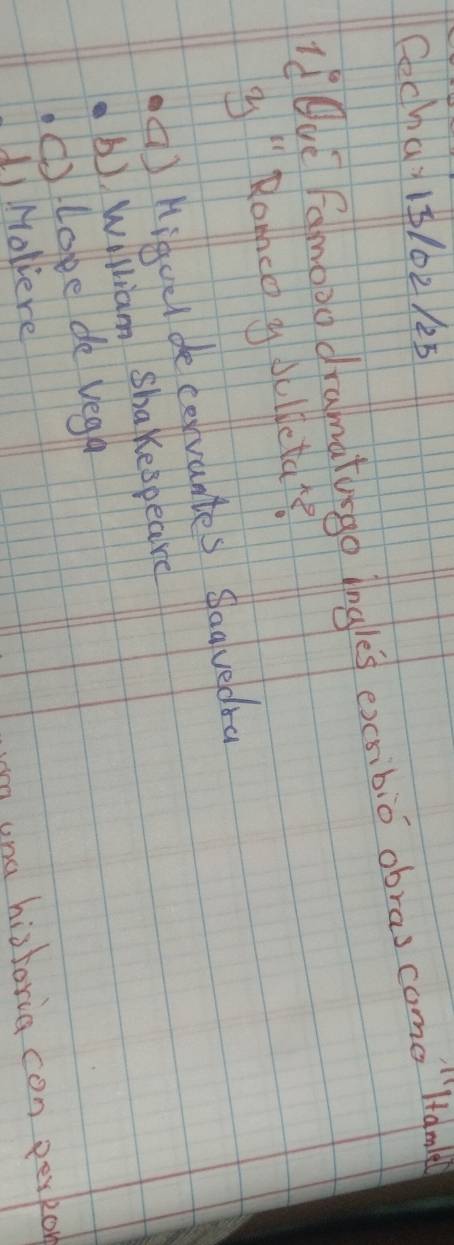 Fecha: 13/02/25
1¿Qué famoso dramaturgo inglés escribió obras como "Hamlet
y "Romeo y Julieta"?
•a) Miguel de cervantes Saavedra
•b). William Shakespeare
•c) Lope de vega
d). Moliere
una historia con person